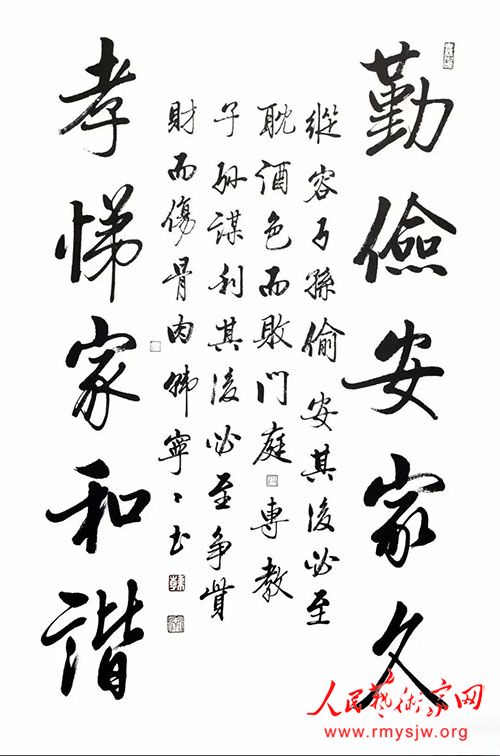 勤儉安家久
縱容子孫偷安其後必至
耽酒色而敗門庭專教
子孫謀利其後必至争貲
財而傷骨肉韓寧〻书
孝悌家和諧
人民藝術家网
www.rmysjw.org